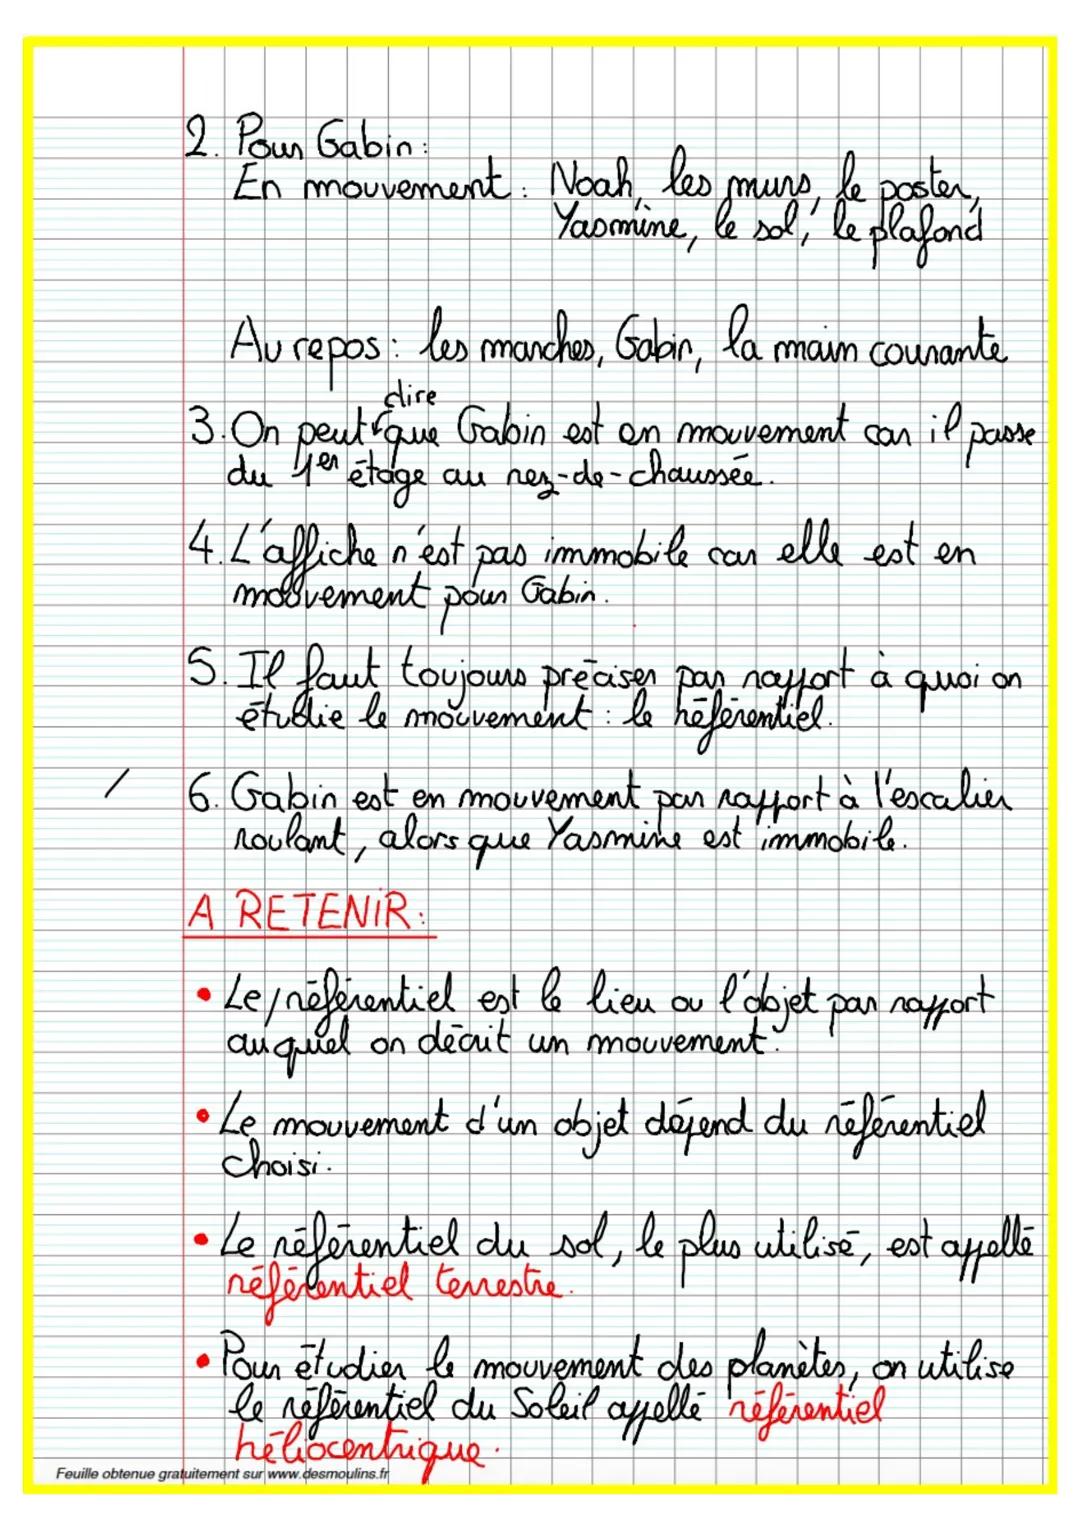 2. Pour Gabin :
En mouvement : Noah, les murs, le poster,
Yasmine, le sol, le plafond
Au repos : les marches, Gabin, la main courante
dire
3. On peut que Gabin est en mouvement car il passe
du 1er étage au rez-de-chaussée.
4. L'affiche n'est pas immobile car elle est en
mouvement pour Gabin.
5. Il faut toujours préciser par rapport à quoi on
étudie le mouvement : le référentiel.
6. Gabin est en mouvement par rapport à l'escalier
roulant, alors que Yasmine est immobile.
A RETENIR :
• Le référentiel est le lieu ou l'objet par rapport
auquel on décrit un mouvement.
• Le mouvement d'un objet dépend du référentiel
choisi.
• Le référentiel du sol, le plus utilisé, est appellé
référentiel terrestre.
• Pour étudier le mouvement des planètes, on utilise
le référentiel du Soleil appellé référentiel
héliocentrique.
Feuille obtenue gratuitement sur www.desmoulins.fr